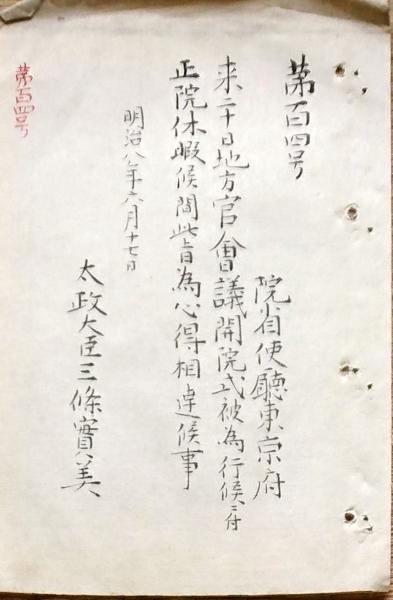 第百四号
院省使廳東京府
来二十日地方官會議開院式被為行候ニ付
正院休暇候間此旨為心得相達候事
明治八年六月十七日
太政大臣三條實美
第百四号